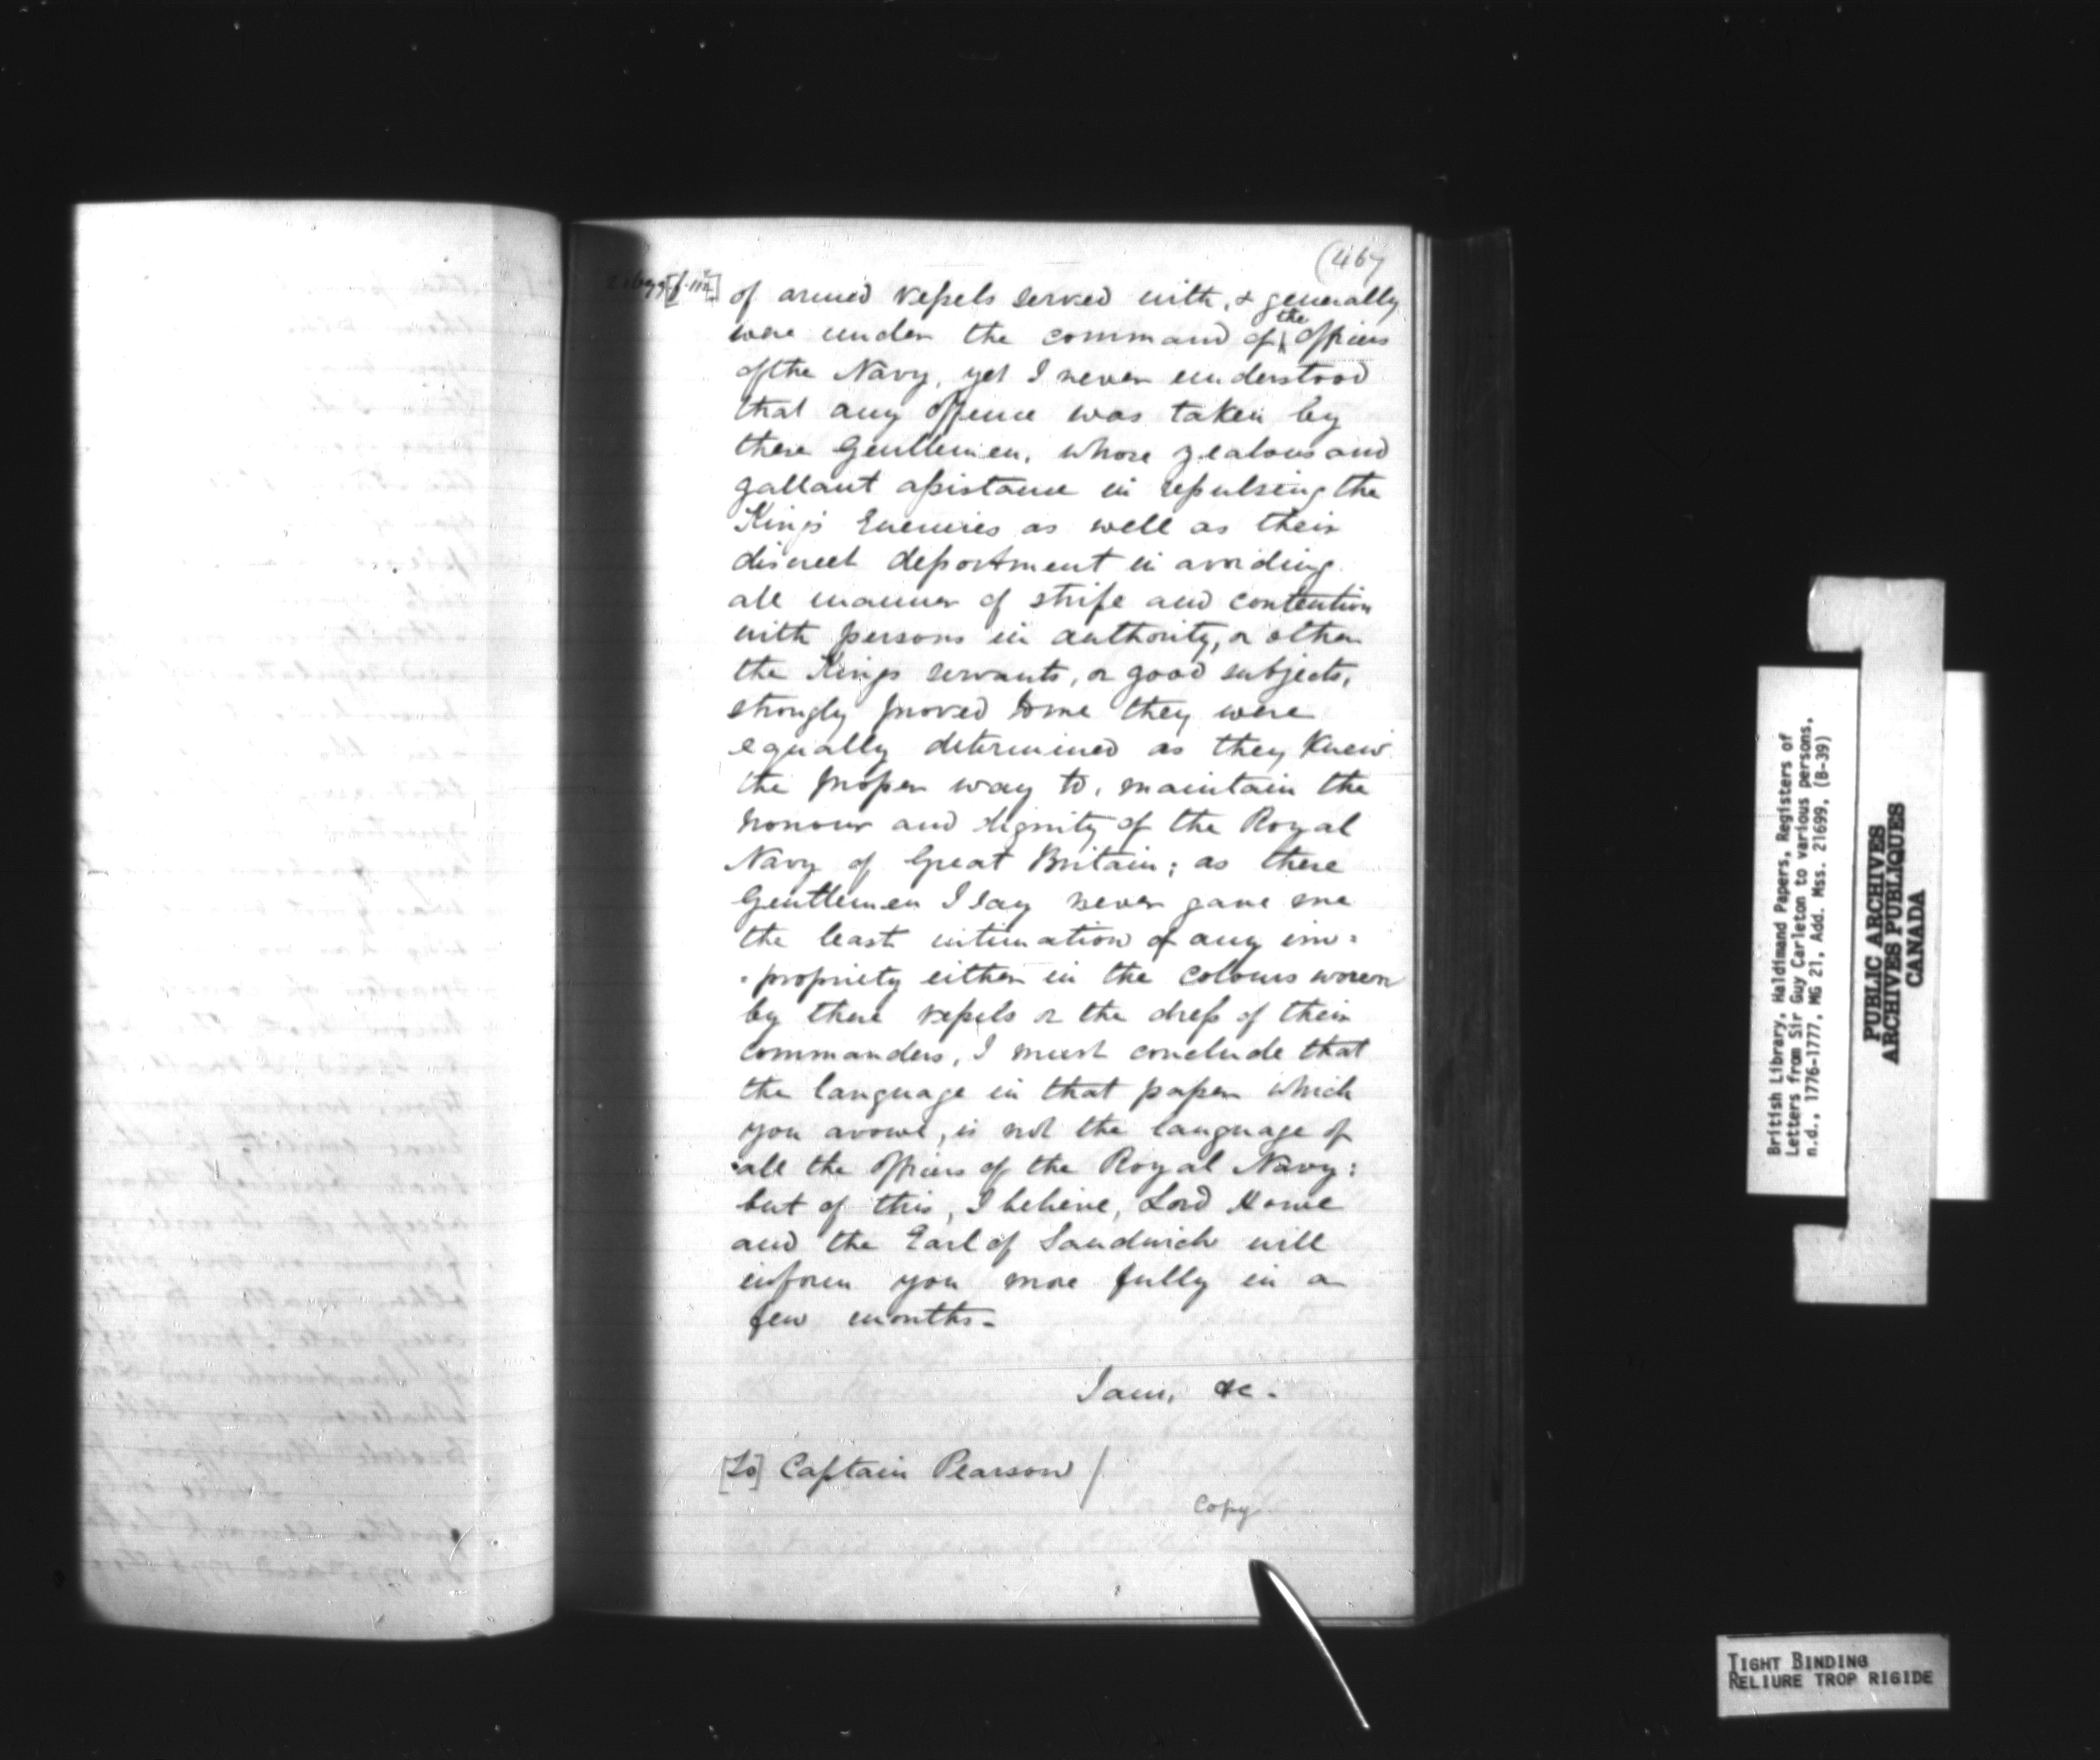 (467
21699 [f. 112]
of armed vessels served with, & generally
were under the command of the officers
of the Navy, yet I never understood
that any offence was taken by
these Gentlemen, whose zealous and
gallant assistance in repulsing the
King's Enemies as well as their
discreet deportment in avoiding
all manner of strife and contention
with persons in authority, or other
the Kings servants, or good subjects,
strongly proved to me they were
equally determined as they knew
the proper way to, maintain the
honour and dignity of the Royal
Navy of Great Britain; as these
Gentlemen I say never gave me
the least intimation of any im=
=propriety either in the colours woren
by these vessels or the dress of their
commanders, I must conclude that
the language in that paper which
you avowe, is not the language of
all the officers of the Royal Navy:
but of this, I believe, Lord Howe
and the Earl of Sandwich will
inform you more fully in a
few months_
I am, &c.
[To] Captain Pearson /
Copy
British Library, Haldimand Papers, Registers of
Letters from Sir Guy Carleton to various persons,
n.d., 1776-1777, MG 21, Add. Mss. 21699, (B-39)
PUBLIC ARCHIVES
ARCHIVES PUBLIQUES
CANADA
TIGHT BINDING
RELIURE TROP RIGIDE